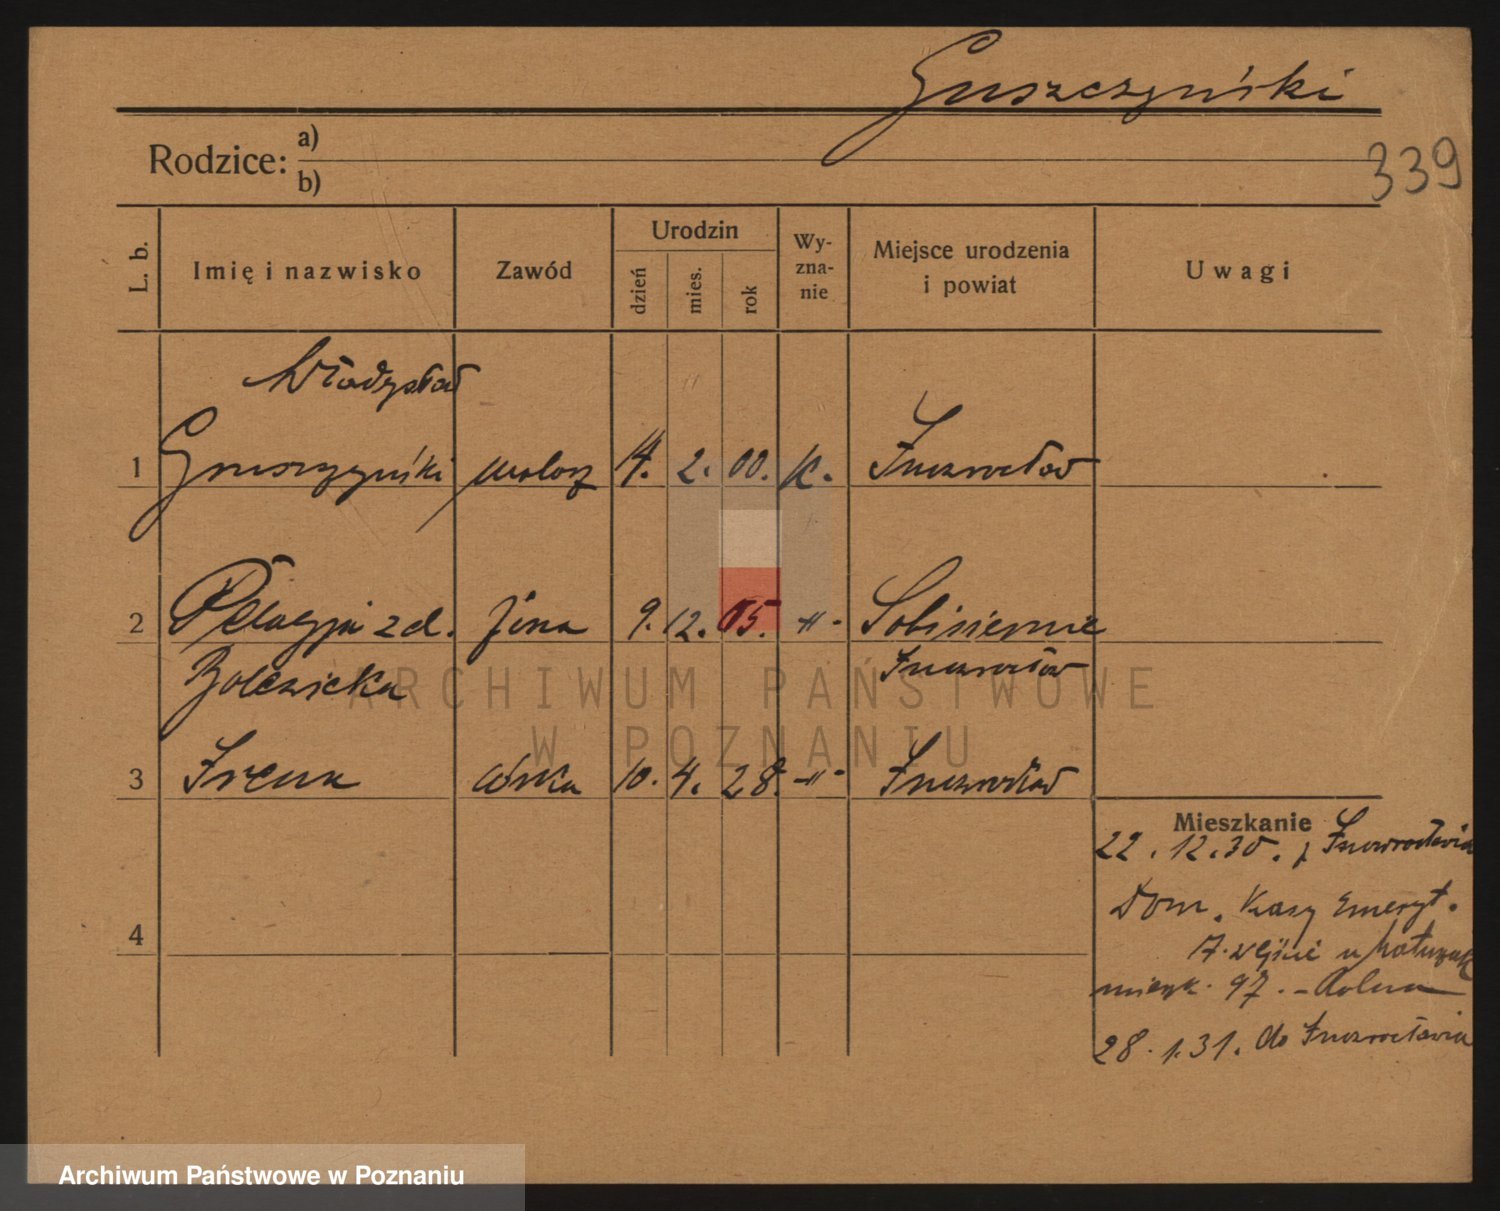 Guszczyński
339
Rodzice: a)
b)
L. b.
Imię i nazwisko
Zawód
Urodzin
dzień
mies.
rok
Wy-
zna-
nie
Miejsce urodzenia
i powiat
Uwagi
Władysław
1 Gruszczyński malarz 14. 2. 00. k. Inowrocław
2 Pelagja zd. żona 9. 12. 05. -"- Sobisiernie
Inowrocław
3 Irena córka 10. 4. 28. -"- Inowrocław
4
Mieszkanie
22. 12. 30. z Inowrocławia
Dom. Kasy Emeryt.
17. wejście u
mieszk. 97. -
28. 1. 31. do Inowrocławia
ARCHIWUM PAŃSTWOWE
W POZNANIU
Archiwum Państwowe w Poznaniu